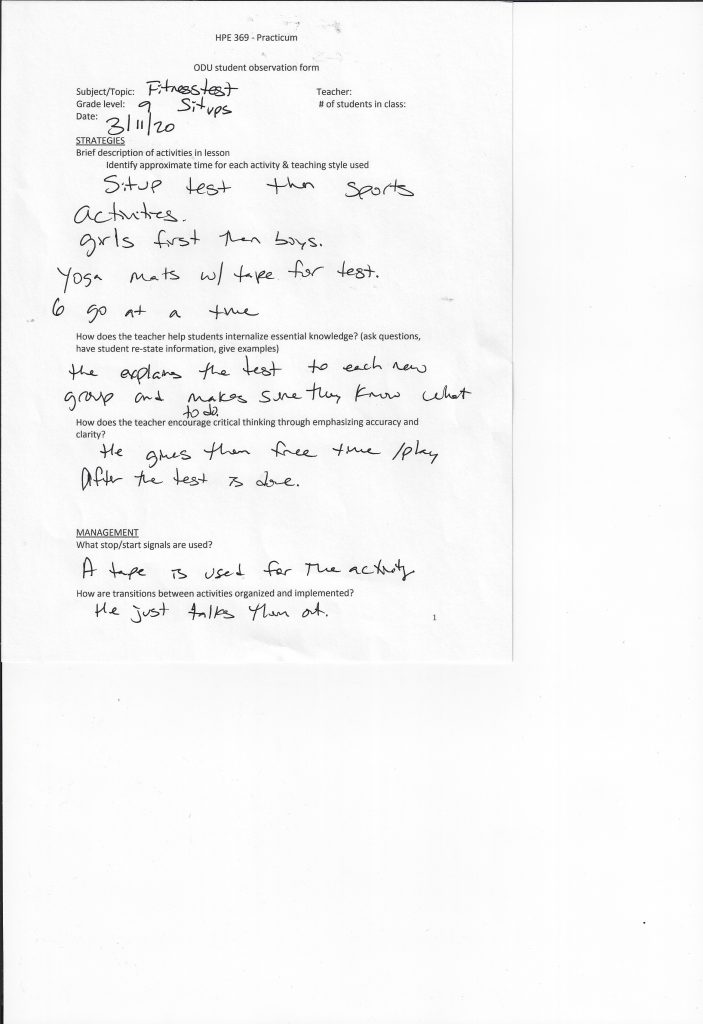 HPE 369 - Practicum
ODU student observation form
Subject/Topic: Fitness test
Teacher:
Grade level: 9 Situps
# of students in class:
Date: 3/11/20
STRATEGIES
Brief description of activities in lesson
Identify approximate time for each activity & teaching style used
Situp test then sports
activities.
girls first then boys.
Yoga mats w/ tape for test.
6 go at a time
How does the teacher help students internalize essential knowledge? (ask questions,
have student re-state information, give examples)
He explains the test to each new
group and makes sure they know what
to do.
How does the teacher encourage critical thinking through emphasizing accuracy and
clarity?
He gives them free time /play
After the test is done.
MANAGEMENT
What stop/start signals are used?
A tape is used for the activity
How are transitions between activities organized and implemented?
He just talks them out.
1